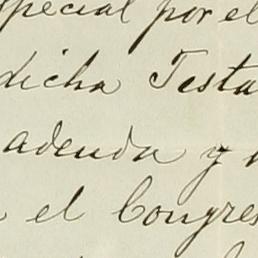 special por el
dicha Testa
adenda y
el Congres